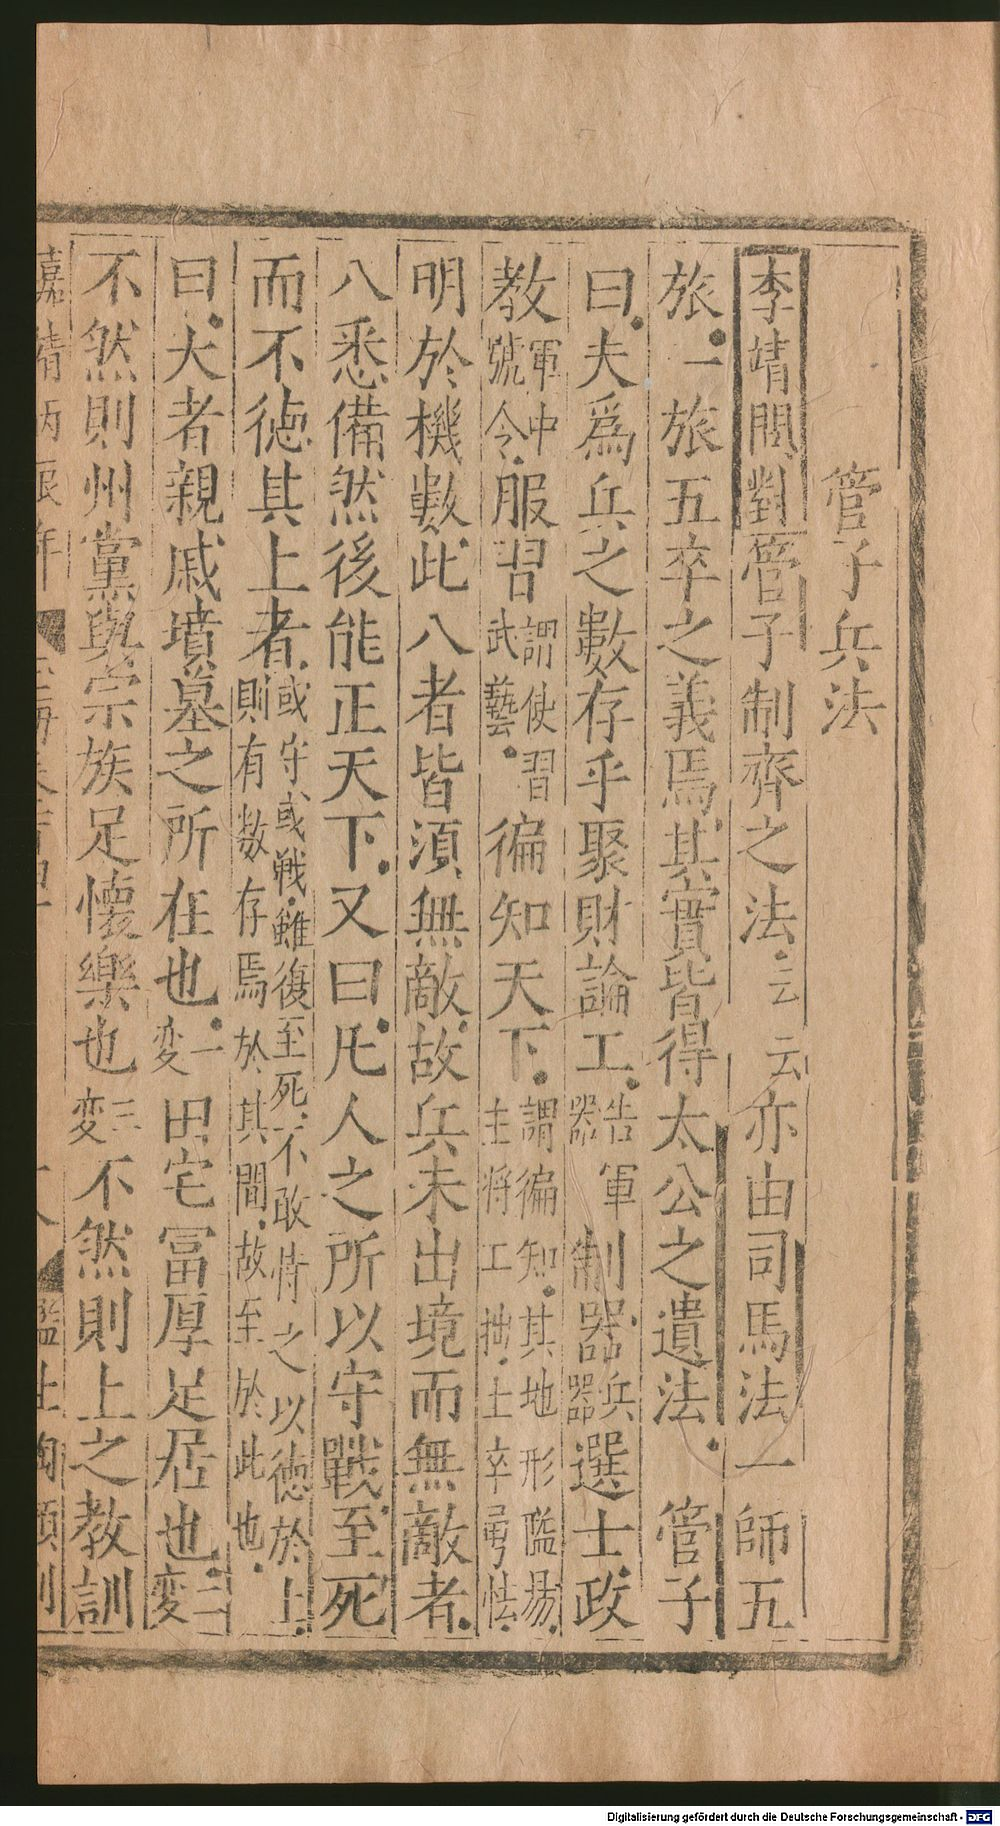 管子兵法
李靖問對管子制齊之法云云亦由司馬法一師五
旅一旅五卒之義焉其實皆得太公之遺法 管子
曰夫爲兵之數存乎聚財論工造軍器制器兵器選士政
教軍中號令服習謂使習武藝徧知天下謂徧知其地形隘易主將工拙士卒勇怯
明於機數此八者皆須無敵故兵未出境而無敵者
八悉備然後能正天下又曰凡人之所以守戰至死
而不徳其上者或守或戦雖復至死不敢恃之以徳於上則有数存焉於其間故至於此也
曰大者親戚墳墓之所在也一変田宅冨厚足居也二変
不然則州黨與宗族足懷樂也三変不然則上之教訓
嘉靖丙辰年 玉海卷百四十 監生陶頌刊
Digitalisierung gefördert durch die Deutsche Forschungsgemeinschaft - DFG